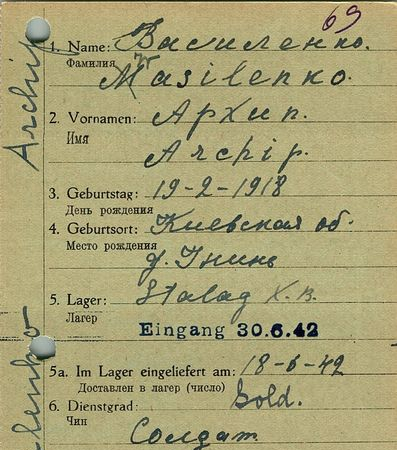 69
1. Name: Василенко.
Фамилия Wasilenko.
2. Vornamen: Архип.
Имя Archip.
3. Geburtstag: 19-2-1918
День рождения
4. Geburtsort: Киевская об.
Место рождения д.
5. Lager: Stalag X.B.
Лагер
Eingang 30.6.42
5a. Im Lager eingeliefert am: 18-6-42
Доставлен в лагер (число)
6. Dienstgrad: Sold.
Чин Солдат
Archip
lenko